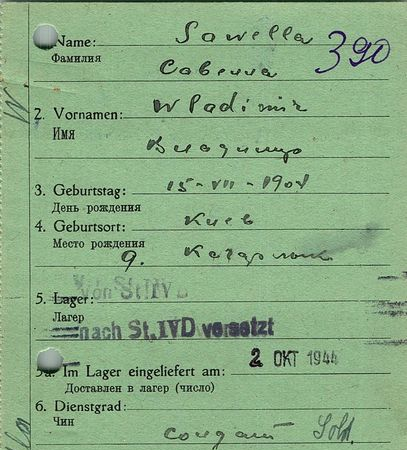 Name: Sawella 390
Фамилия Савелла
2. Vornamen: Wladimir
Имя Владимир
3. Geburtstag: 15-VII-1901
День рождения
4. Geburtsort: Киев
Место рождения г. Кагарлык
5. Lager: von St. IVD
Лагер
nach St. IVD versetzt
5a. Im Lager eingeliefert am: 2 ОКТ 1944
Доставлен в лагер (число)
6. Dienstgrad:
Чин солдат Sold.